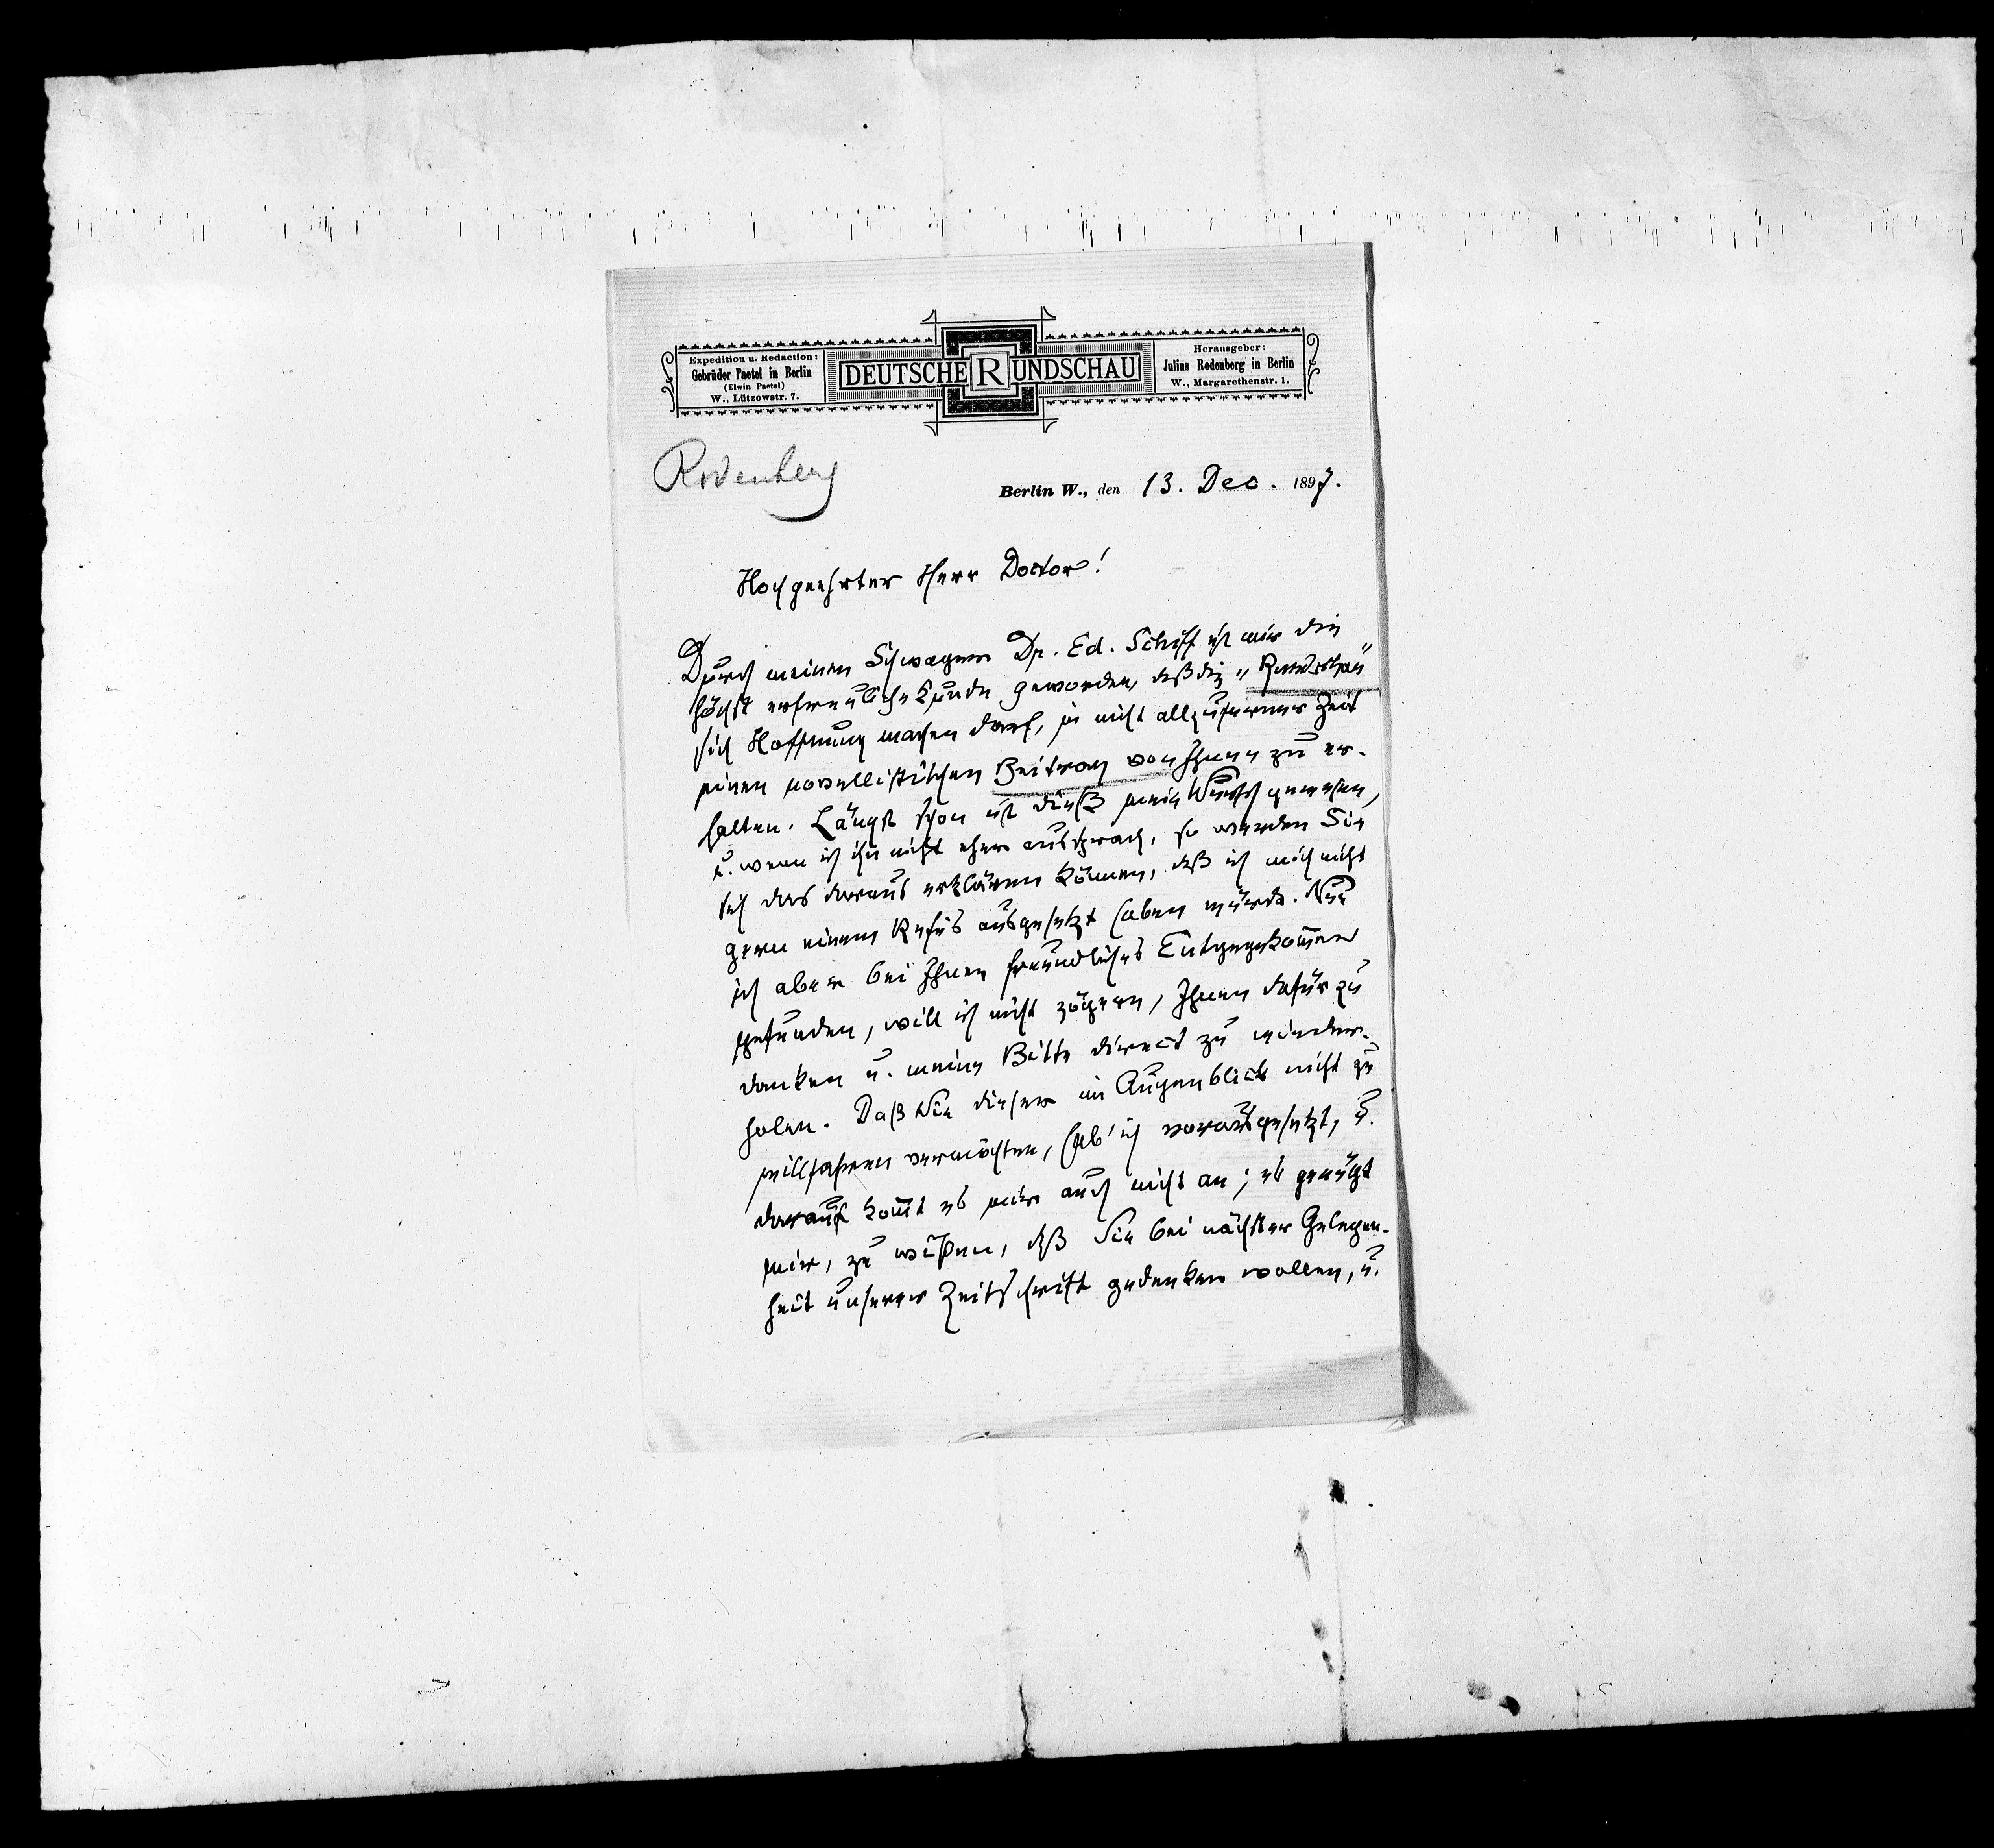 Expedition u. Redaction:
Gebrüder Paetel in Berlin
(Elwin Paetel)
W., Lützowstr. 7.
DEUTSCHE RUNDSCHAU
Herausgeber:
Julius Rodenberg in Berlin
W., Margarethenstr. 1.
Rodenberg
Berlin W., den 13. Dec. 1897.
Hochgeehrter Herr Doctor!
Durch meinen Schwager Dr. Ed. Schiff ist mir die
höchst erfreuliche Kunde geworden, daß die „Rundschau“
sich Hoffnung machen darf, in nicht allzuferner Zeit
einen novellistischen Beitrag von Ihnen zu er-
halten. Längst schon ist dieß mein Wunsch gewesen,
u. wenn ich ihn nicht eher aussprach, so werden Sie
sich das daraus erklären können, daß ich mich nicht
gern einem Refus ausgesetzt haben würde. Nun
ich aber bei Ihnen freundliches Entgegenkom̄en
gefunden, will ich nicht zögern, Ihnen dafür zu
danken u. meine Bitte direct zu wieder-
holen. Daß Sie dieser im Augenblick nicht zu
willfahren vermöchten, hab' ich vorausgesetzt, u.
darauf kom̄t es mir auch nicht an; es genügt
mir, zu wißen, daß Sie bei nächster Gelegen-
heit unserer Zeitschrift gedenken wollen, u.